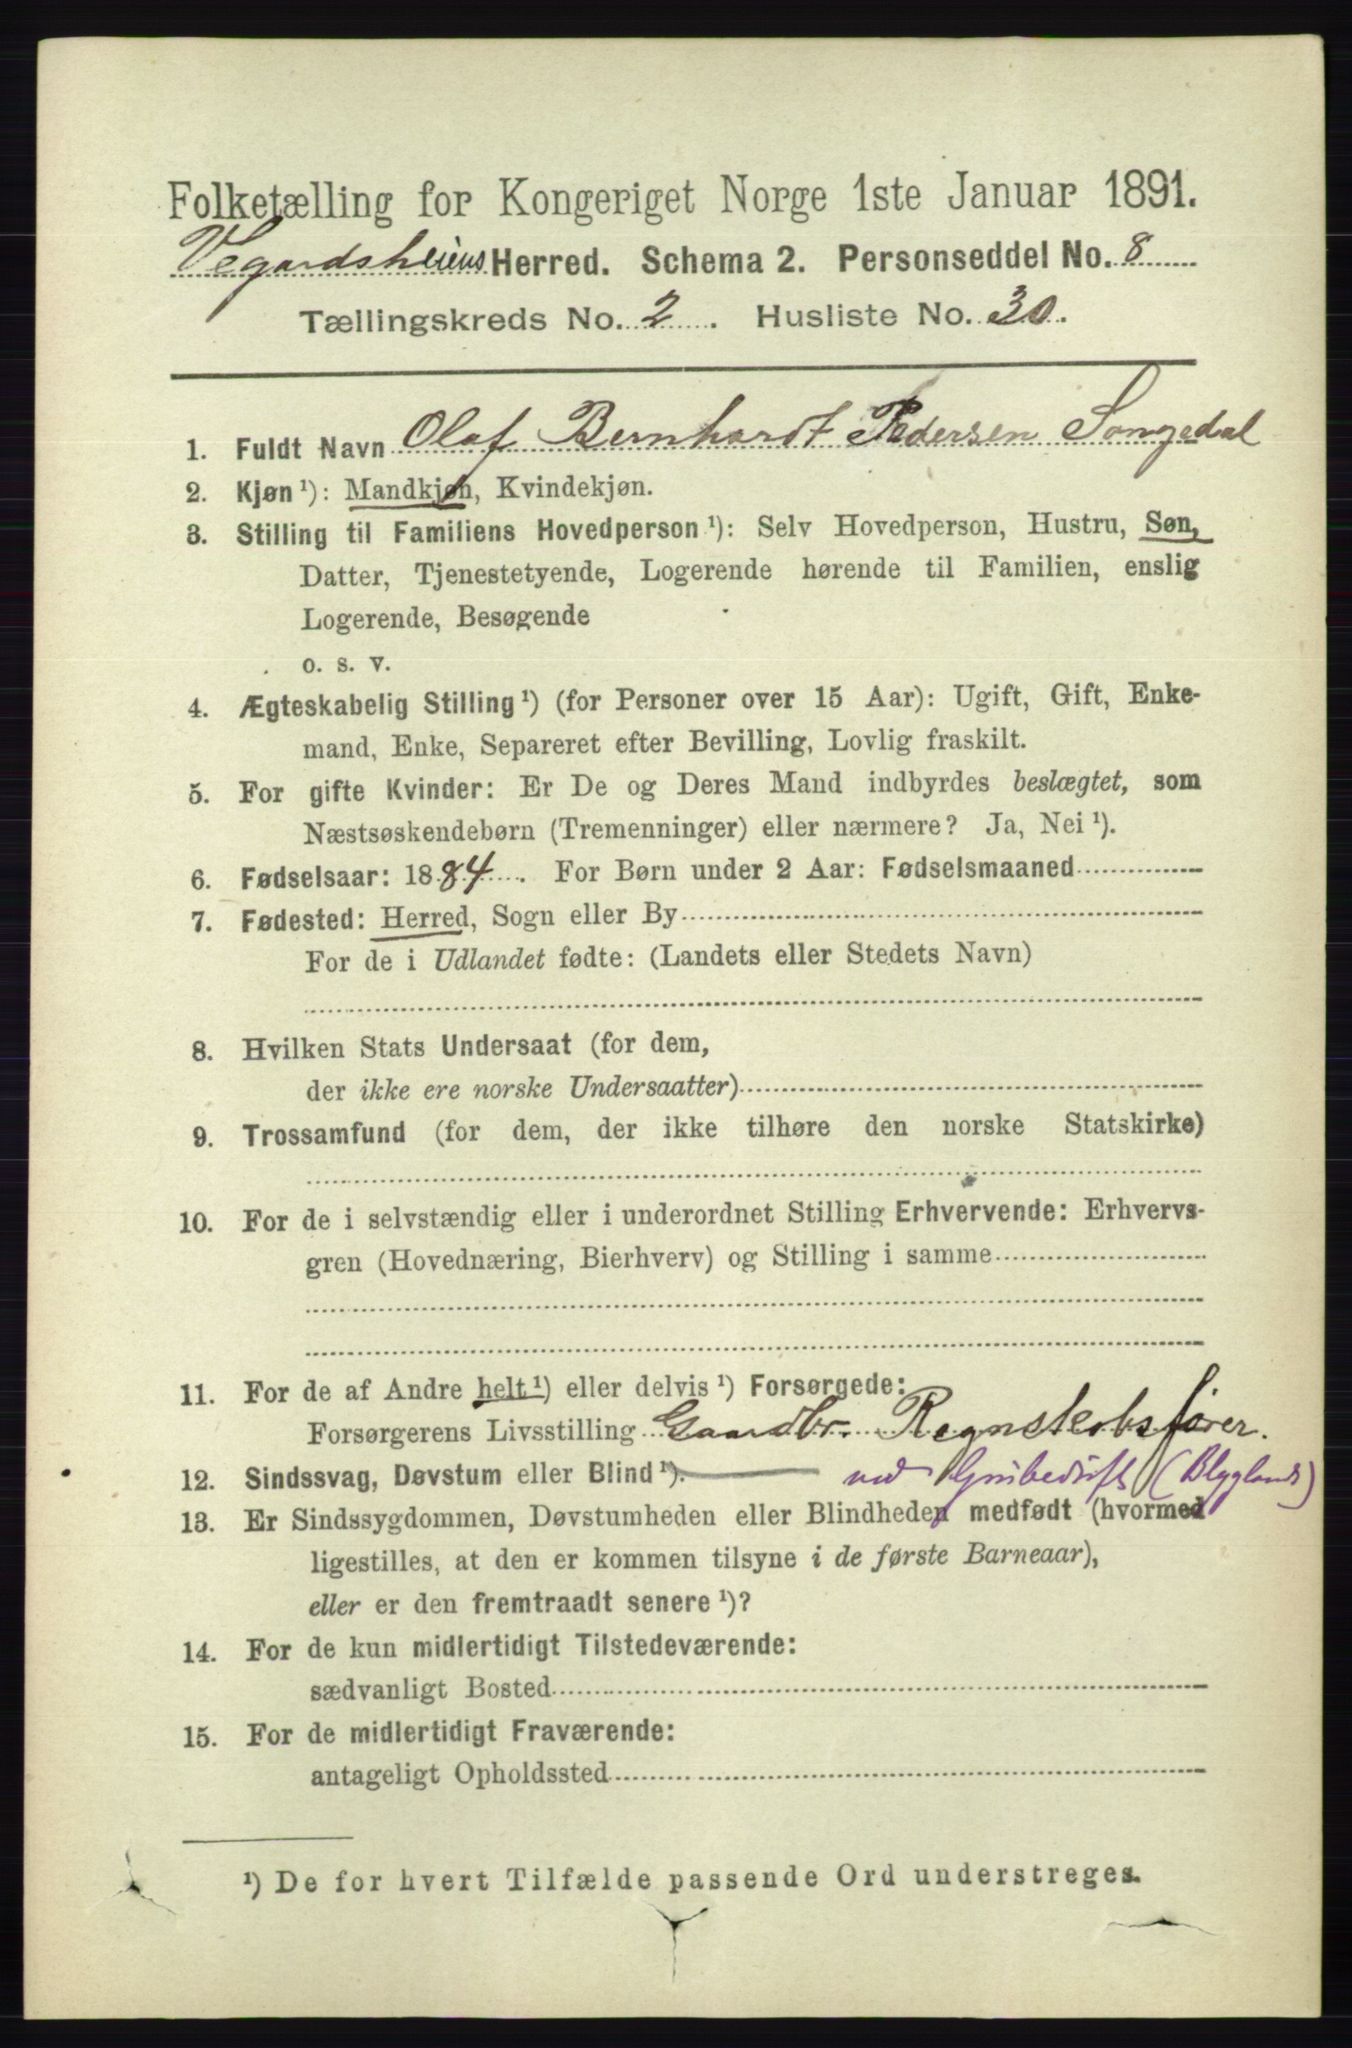 Folketælling for Kongeriget Norge 1ste Januar 1891.
Vegardsheiens Herred. Schema 2. Personseddel No. 8
Tællingskreds No. 2. Husliste No. 30.
1. Fuldt Navn Olaf Bernhardt Pedersen Songedal
2. Kjøn ¹): Mandkjøn, Kvindekjøn.
3. Stilling til Familiens Hovedperson ¹): Selv Hovedperson, Hustru, Søn,
Datter, Tjenestetyende, Logerende hørende til Familien, enslig
Logerende, Besøgende
o. s. v.
4. Ægteskabelig Stilling ¹) (for Personer over 15 Aar): Ugift, Gift, Enke-
mand, Enke, Separeret efter Bevilling, Lovlig fraskilt.
5. For gifte Kvinder: Er De og Deres Mand indbyrdes beslægtet, som
Næstsøskendebørn (Tremenninger) eller nærmere? Ja, Nei ¹).
6. Fødselsaar: 1884. For Børn under 2 Aar: Fødselsmaaned
7. Fødested: Herred, Sogn eller By
For de i Udlandet fødte: (Landets eller Stedets Navn)
8. Hvilken Stats Undersaat (for dem,
der ikke ere norske Undersaatter)
9. Trossamfund (for dem, der ikke tilhøre den norske Statskirke)
10. For de i selvstændig eller i underordnet Stilling Erhvervende: Erhvervs-
gren (Hovednæring, Bierhverv) og Stilling i samme
11. For de af Andre helt ¹) eller delvis ¹) Forsørgede:
Forsørgerens Livsstilling Gaardbr. Regnskabsfører.
12. Sindssvag, Døvstum eller Blind ¹). ved Grubedrift (Blyglands)
13. Er Sindssygdommen, Døvstumheden eller Blindheden medfødt (hvormed
ligestilles, at den er kommen tilsyne i de første Barneaar),
eller er den fremtraadt senere ¹)?
14. For de kun midlertidigt Tilstedeværende:
sædvanligt Bosted
15. For de midlertidigt Fraværende:
antageligt Opholdssted
¹) De for hvert Tilfælde passende Ord understreges.